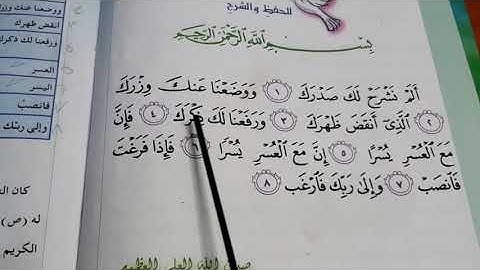 للحفظ والشرح
بِسْمِ اللَّهِ الرَّحْمَٰنِ الرَّحِيمِ
أَلَمْ نَشْرَحْ لَكَ صَدْرَكَ ١ وَوَضَعْنَا عَنكَ وِزْرَكَ
٢ الَّذِي أَنقَضَ ظَهْرَكَ ٣ وَرَفَعْنَا لَكَ ذِكْرَكَ ٤ فَإِنَّ
مَعَ الْعُسْرِ يُسْرًا ٥ إِنَّ مَعَ الْعُسْرِ يُسْرًا ٦ فَإِذَا فَرَغْتَ
فَانصَبْ ٧ وَإِلَىٰ رَبِّكَ فَارْغَب ٨
الله العلي العظيم
ووضعنا عنك وزرك
أنقض ظهرك
ورفعنا لك ذكرك
العسر
اليسر
فانصب
وإلى ربك
كان
له (ص)
الكريم